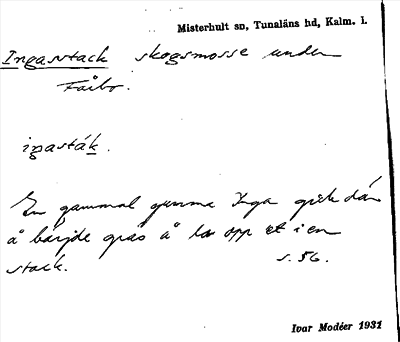 Misterhult sn, Tunaläns hd, Kalm. l.
Ingasstack skogsmosse under
Fåbo.
igasták.
En gammal gumma Inga gick där
å bärjde gräs å la opp et i en
stack.
s. 56.
Ivar Modéer 1931